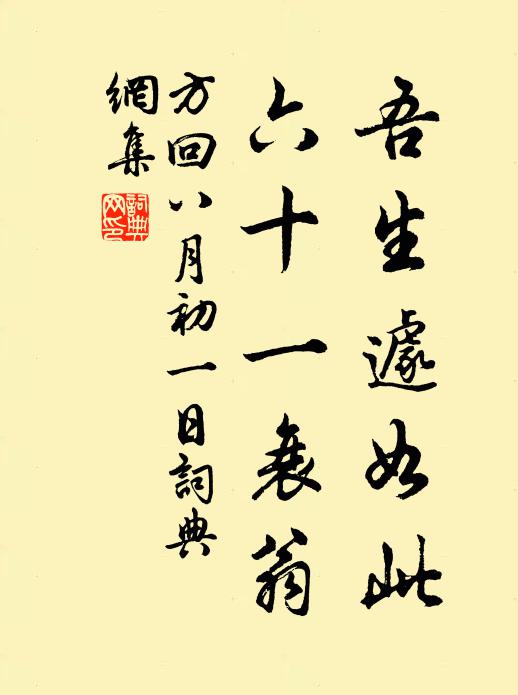 吾生遽如此
六十一衰翁
方回八月初一日詞典
網集
詞典网印